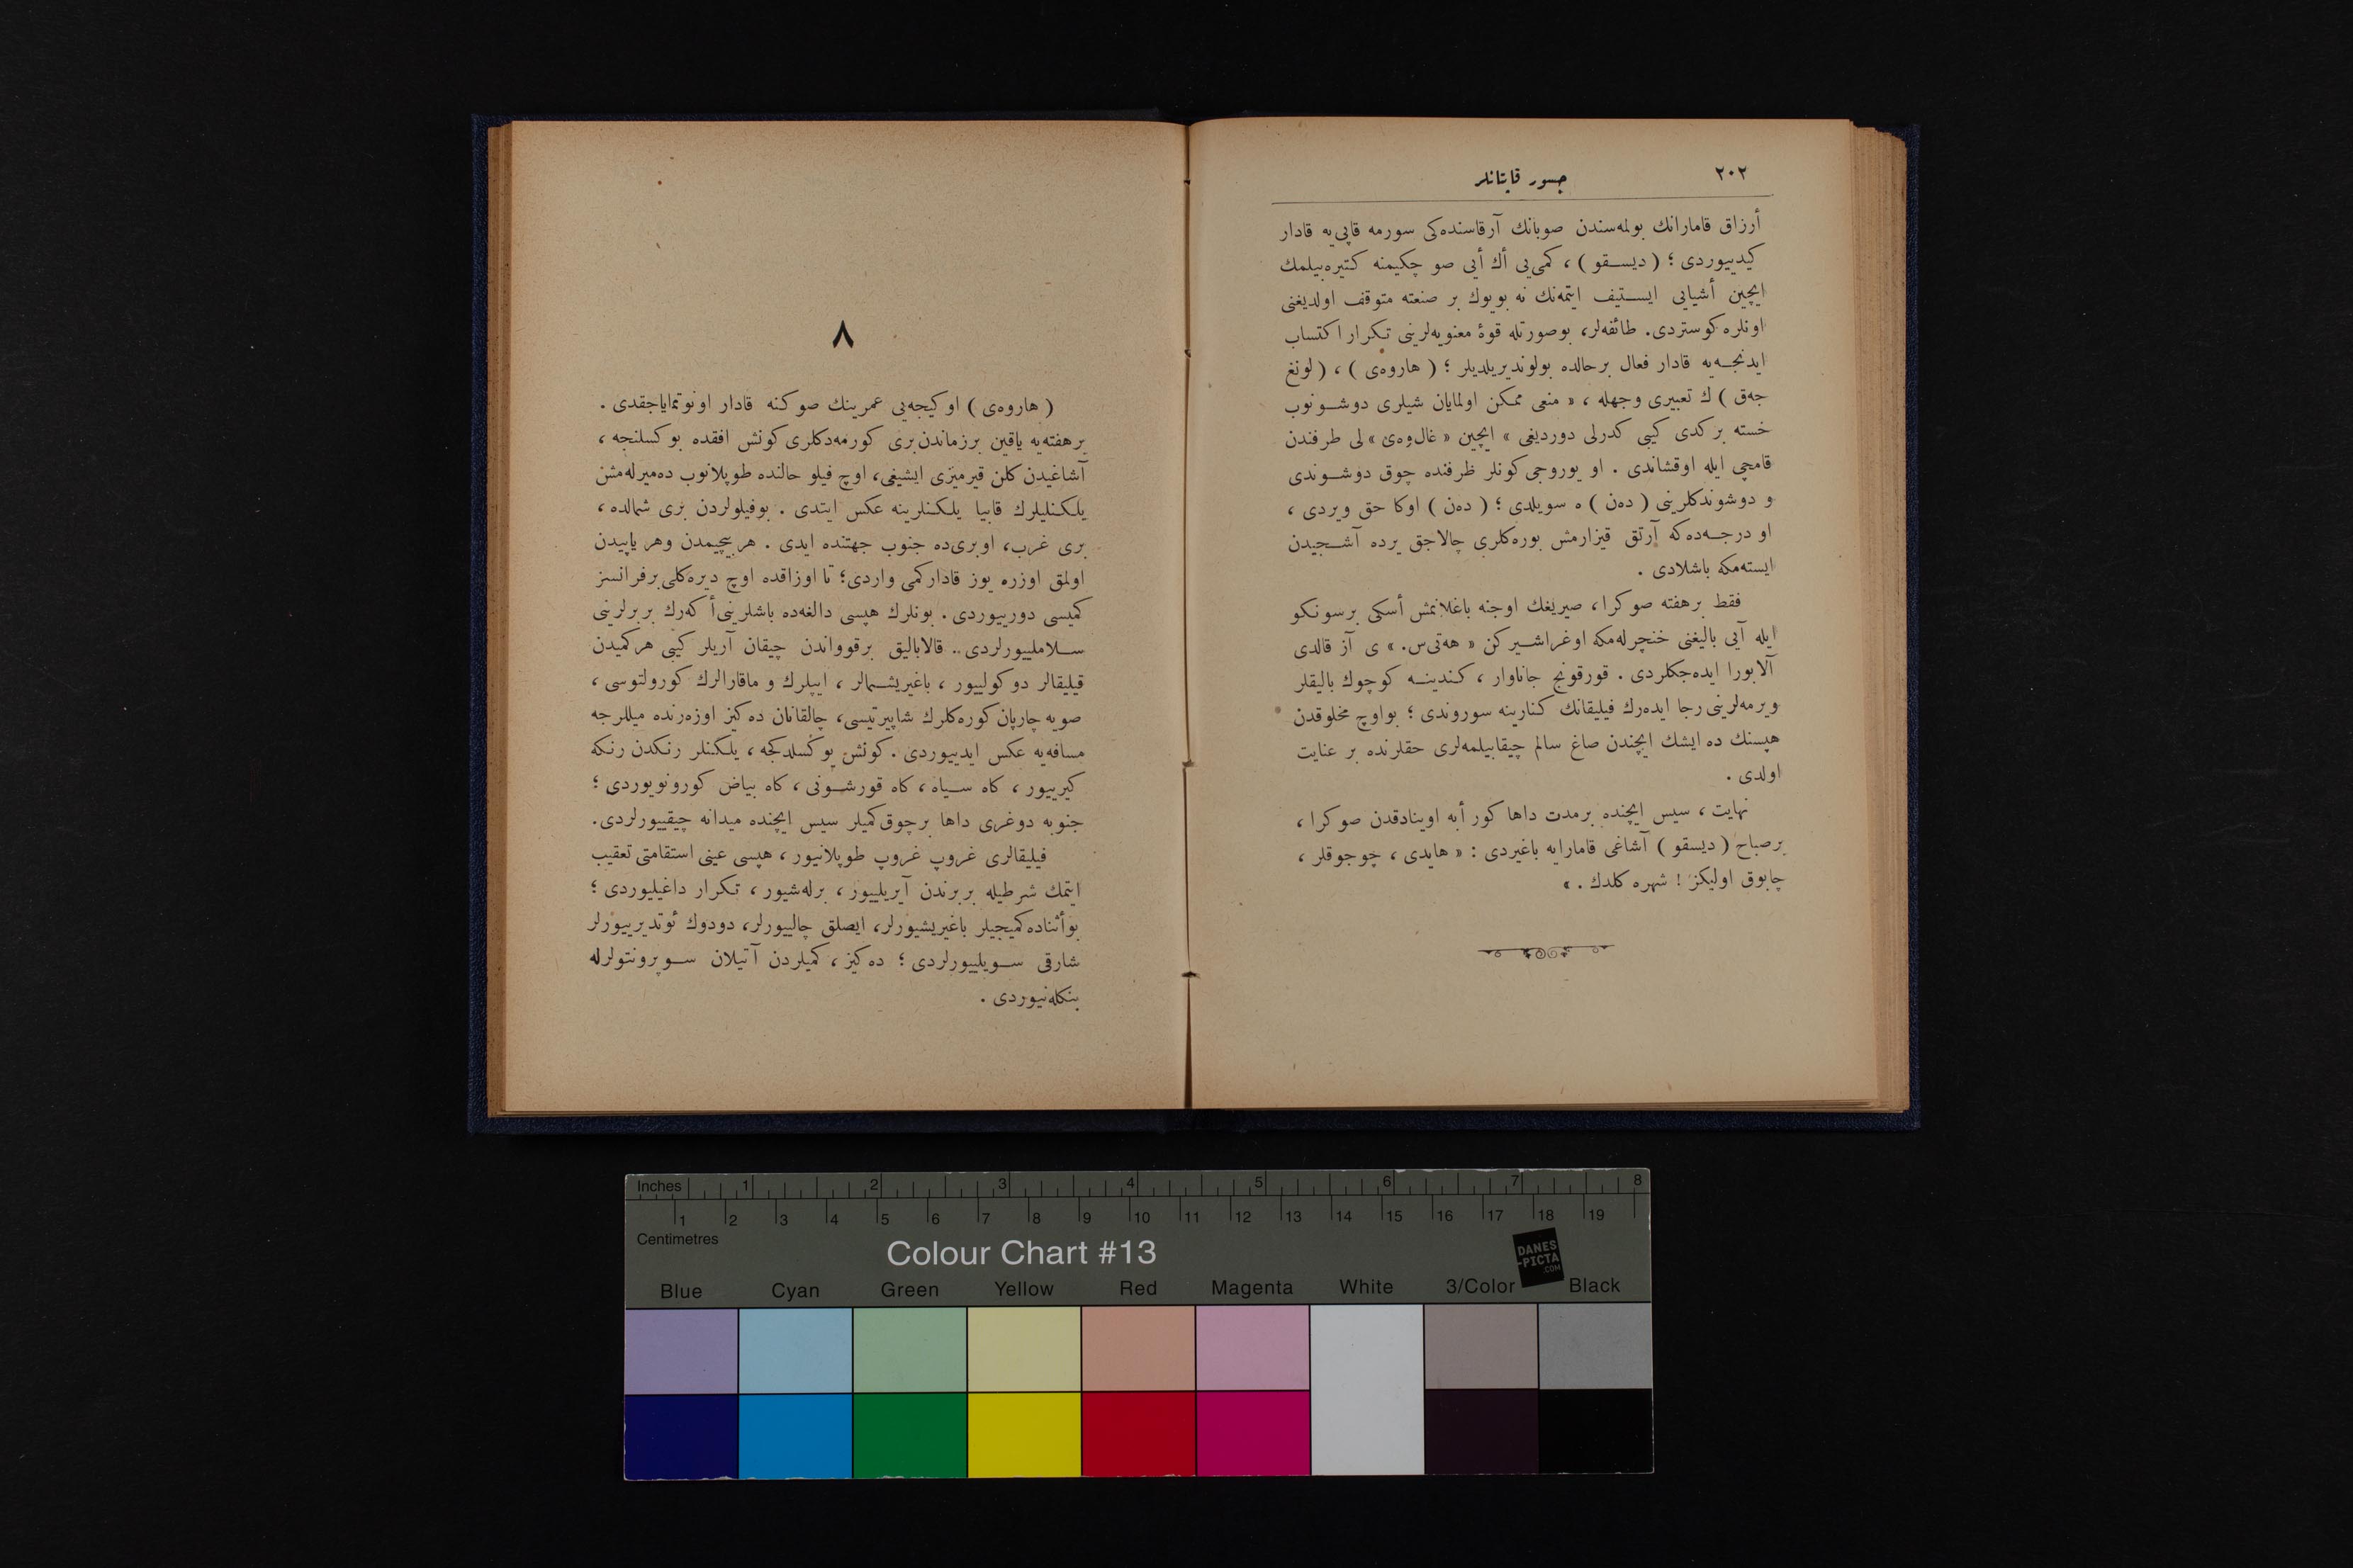 ٢٠٢
جسور قاپتانلر
أرزاق قامارانك بولمه‌سندن صوبانك آرقاسنده‌کی سورمه قاپی‌یه قادار
کیدییوردی ؛ ( دیسـقو ) ، کمی‌یی أك أیی صو چکیمنه کتیره‌بیلمك
ایچین أشیایی ایسـتیف ایتمه‌نك نه بویوك بر صنعته متوقف اولدیغنی
اونلره کوستردی. طائفه‌لر، بوصورتله قوهٔ معنویه‌لرینی تکرار اکتساب
ایدنجـه‌یه قادار فعال برحالده بولوندیریلدیلر ؛ ( هاروه‌ی ) ، ( لونغ
جه‌ق ) ك تعبیری وجهله ، « منعی ممکن اولمایان شیلری دوشـونوب
خسته بر کدی کیبی کدرلی دوردیغی » ایچین « غال‌وه‌ی » لی طرفندن
قامچی ایله اوقشاندی . او یوروجی کونلر ظرفنده چوق دوشـوندی
و دوشوندکلرینی ( ده‌ن ) ه سویلدی ؛ ( ده‌ن ) اوکا حق ویردی ،
او درجـه‌ده‌که آرتق قیزارمش بوره‌کلری چالاجق یرده آشـجیدن
ایسته‌مکه باشلادی .
فقط برهفته صوکرا، صیریغك اوجنه باغلانمش أسکی برسونکو
ایله آیی بالیغنی خنچرله‌مکه اوغراشـیرکن « هه‌تی‌س. » ی آز قالدی
آلابورا ایده‌جکلردی . قورقونج جاناوار ، کـندینـه کوچوك بالیقلر
ویرمه‌لرینی رجا ایده‌رك فیلیقانك کنارینه سوروندی ؛ بواوچ مخلوقدن
هپسنك ده ایشك ایچندن صاغ سالم چیقابیلمه‌لری حقلرنده بر عنایت
اولدی .
نهایت ، سیس ایچنده برمدت داها کور أبه اوینادقدن صوکرا ،
برصباح ( دیسقو ) آشاغی قامارایه باغیردی : « هایدی ، چوجوقلر ،
چابوق اولیکز ! شهره کلدك . »
٨
( هاروه‌ی ) او کیجه‌یی عمرینك صوکنه قادار اونوتمایاجقدی .
برهفته‌یه یاقین برزماندن‌بری کورمه‌دکلری کونش افقده یوکسلنجه ،
آشاغیدن کلن قیرمیزی ایشیغی، اوچ فیلو حالنده طوپلانوب ده‌میرله‌مش
یلکنلیلرك قابیا یلکنلرینه عکس ایتدی . بوفیلولردن بری شمالده ،
بری غرب، اوبری‌ده جنوب جهتنده ایدی . هر بیچیمدن وهر یاپیدن
اولمق اوزره یوز قادار کمی واردی؛ تا اوزاقده اوچ دیره‌کلی برفرانسز
کمیسی دورییوردی . بونلرك هپسی دالغه‌ده باشلرینی أکه‌رك بربرلرینی
سـلاملییورلردی .. قالابالیق برقوواندن چیقان آریلر کیبی هرکمیدن
فیلیقالر دوکولییور ، باغیریشـمالر ، ایپلرك و ماقارالرك کورولتوسی ،
صویه چارپان کوره‌کلرك شاپیرتیسی، چالقانان ده‌کیز اوزه‌رنده میللرجه
مسافه‌یه عکس ایدییوردی . کونش یوکسلدکجه ، یلکنلر رنکدن رنکه
کیرییور ، کاه سـیاه ، کاه قورشـونی ، کاه بیاض کورونویوردی ؛
جنوبه دوغری داها برچوق کمیلر سیس ایچنده میدانه چیقییورلردی.
فیلیقالری غروپ غروپ طوپلانیور ، هپسی عینی استقامتی تعقیب
ایتمك شرطیله بربرندن آیریلییور ، برله‌شیور ، تکرار داغیلیوردی ؛
بوأثناده کمیجیلر باغیریشیورلر، ایصلق چالییورلر، دودوك ئوتدیرییورلر
شارقی سـویلییورلردی ؛ ده‌کیز ، کمیلردن آتیلان سـوپرونتولرله
بنکله‌نیوردی .
Inches 1 2 3 4 5 6 7 8
1 2 3 4 5 6 7 8 9 10 11 12 13 14 15 16 17 18 19
Centimetres
Colour Chart #13
DANES
-PICTA
.COM
Blue Cyan Green Yellow Red Magenta White 3/Color Black